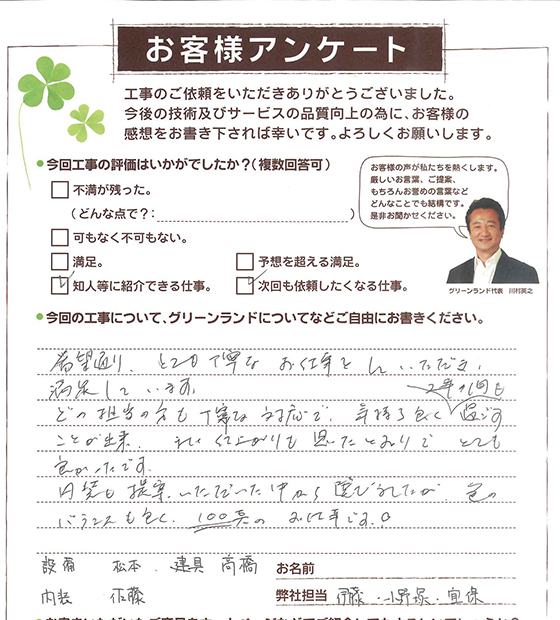 お客様アンケート
工事のご依頼をいただきありがとうございました。
今後の技術及びサービスの品質向上の為に、お客様の
感想をお書き下されば幸いです。よろしくお願いします。
今回工事の評価はいかがでしたか?(複数回答可)
不満が残った。
(どんな点で?: )
可もなく不可もない。
満足。
予想を超える満足。
知人等に紹介できる仕事。
次回も依頼したくなる仕事。
お客様の声が私たちを熱くします。
厳しいお言葉、ご提案、
もちろんお誉めの言葉など
どんなことでも結構です。
是非お聞かせください。
グリーンランド代表 川村英之
今回の工事について、グリーンランドについてなどご自由にお書きください。
希望通り、とても丁寧な お仕事をしていただき、
満足しています。
どの担当の方も丁寧な対応で、気持ち良く 過ごす
ことが出来、 仕上がりも思ったとおりで とても
良かったです。
円笑も提案いただいた中から選びましたが 色の
バランスも良く、100点の お仕事です。
設備 松本、建具 高橋
内装 佐藤
お名前
弊社担当 伊藤・小野塚・宜保